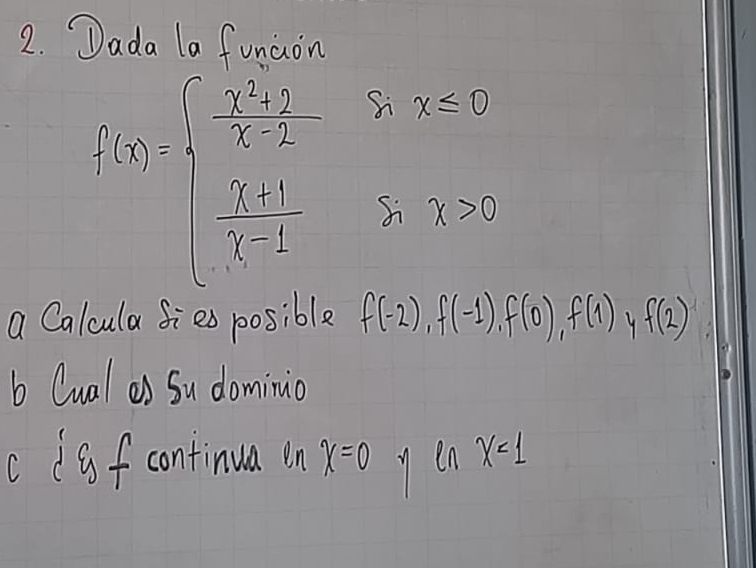 2. Dada la función
f(x) = { x²+2 / x-2 si x ≤ 0
x+1 / x-1 si x > 0
a Calcula si es posible f(-2), f(-1), f(0), f(1) y f(2)
b Cual es su dominio
c ¿Es f continua en x=0 y en x=1